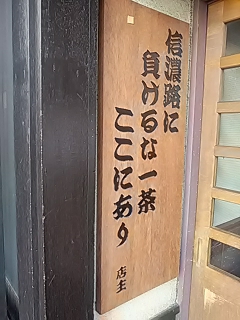 信濃路に
負けるな一茶
ここにあり
店主